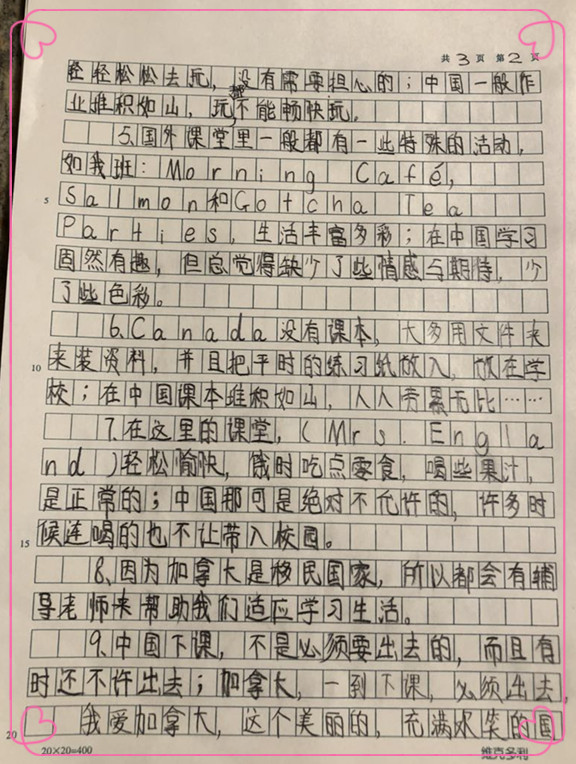 共3页 第2页
轻轻松松去玩，没有需要担心的；中国一般作
业堆积如山，玩都不能畅快玩。
5.国外课堂里一般都有一些特殊的活动，
如我班：Morning Café，
5
Salmon和Gotcha Tea
Parties，生活丰富多彩；在中国学习
固然有趣，但总觉得缺少了些情感与期待，少
了些色彩。
6.Canada没有课本，大多用文件夹
10
来装资料，并且把平时的练习纸放入，放在学
校；在中国课本堆积如山，人人劳累无比……
7.在这里的课堂，(Mrs. Engla
nd)轻松愉快，饿时吃点零食，喝些果汁，
是正常的；中国那可是绝对不允许的，许多时
15
候连喝的也不让带入校园。
8.因为加拿大是移民国家，所以都会有辅
导老师来帮助我们适应学习生活。
9.中国下课，不是必须要出去的，而且有
时还不许出去；加拿大，一到下课，必须出去，
20
我爱加拿大，这个美丽的，充满欢笑的国
20×20=400
维克多利